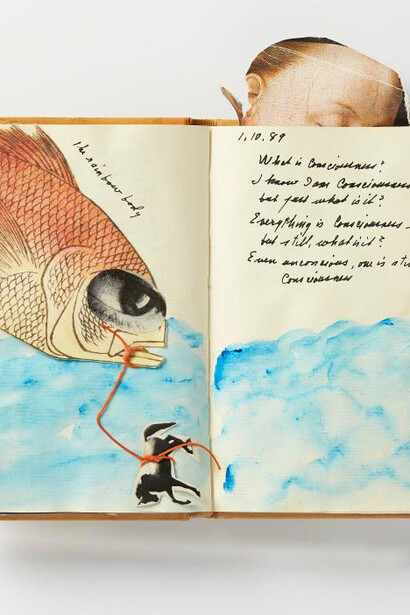 the rainbow body
1.10.89
What is Consciousness?
I know I am Consciousness
but just what is it?
Everything is Consciousness –
but still, what is it?
Even unconscious, one is
Consciousness